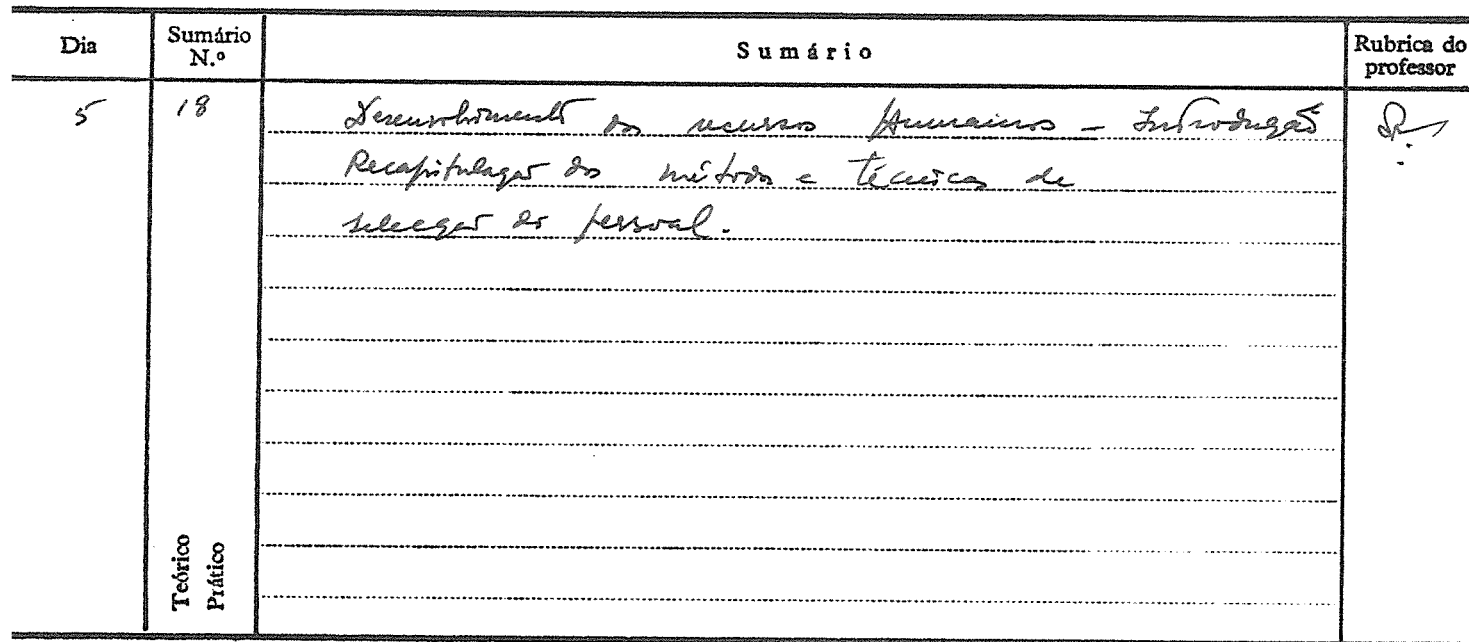 Dia Sumário N.º Sumário Rubrica do professor
5 18 Desenvolvimento dos recursos Humanos - Introdução
Recapitulação dos métodos e técnicas de
selecção do pessoal.
Teórico
Prático